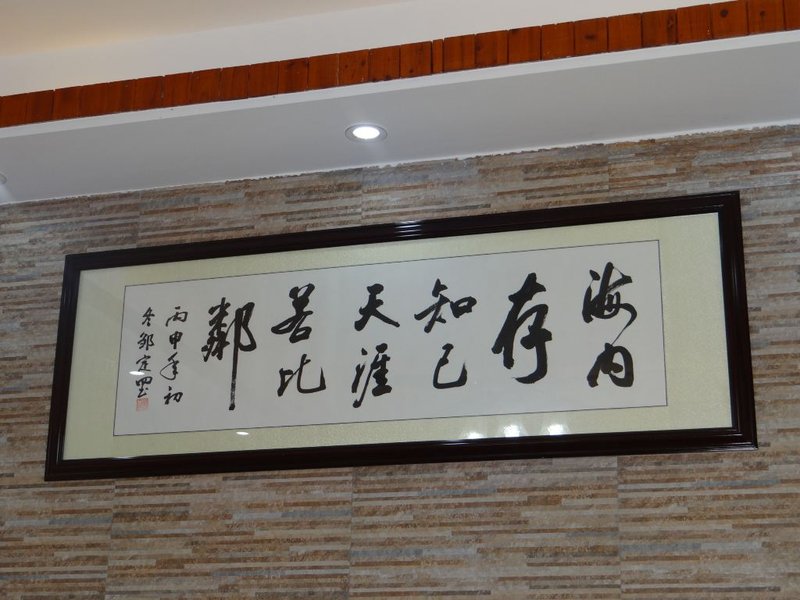 海内
存
知己
天涯
若比
鄰
丙申年初
冬